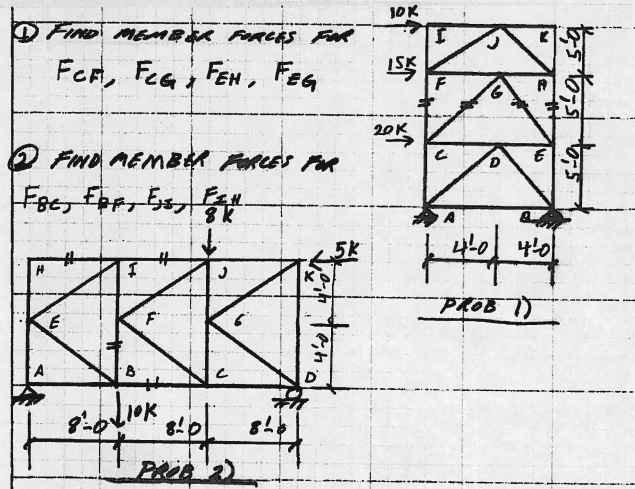 ① FIND MEMBER FORCES FOR
FCF, FCG, FEH, FEG
② FIND MEMBER FORCES FOR
FBC, FBF, FJI, FIH
10K
I J K
15K
F G H
20K
C D E
A B
5'-0
5'-0
5'-0
4'-0 4'-0
PROB 1)
8K
5K
H I J K
E F G
A B C D
4'-0
4'-0
10K
8'-0 8'-0 8'-0
PROB 2)